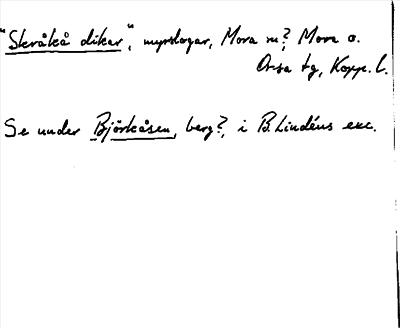 "Skråkå dikar", myrslogar, Mora sn?; Mora o.
Orsa tg, Kopp. l.
Se under Björkåsen, berg?, i B. Lindéns exc.